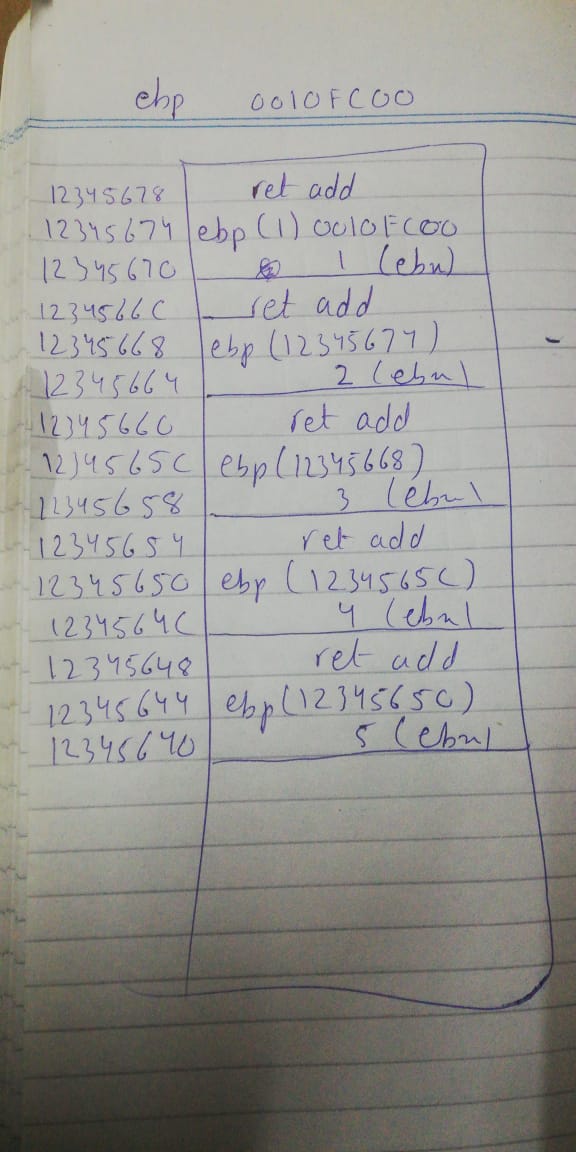 ebp 0010FC00
12345678 ret add
12345674 ebp (1) 0010FC00
12345670 1 (ebx)
1234566C ret add
12345668 ebp (12345674)
12345664 2 (ebx)
12345660 ret add
1234565C ebp (12345668)
12345658 3 (ebx)
12345654 ret add
12345650 ebp (1234565C)
1234564C 4 (ebx)
12345648 ret add
12345644 ebp (12345650)
12345640 5 (ebx)